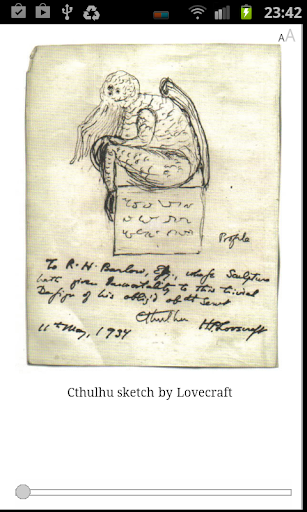 23:42
AA
Profile
To R. H. Barlow, Esq., whose Sculpture
hath given Immortality to this trivial
Design of his oblig'd obt Servt
Cthulhu HPLovecraft
11th May, 1934
Cthulhu sketch by Lovecraft